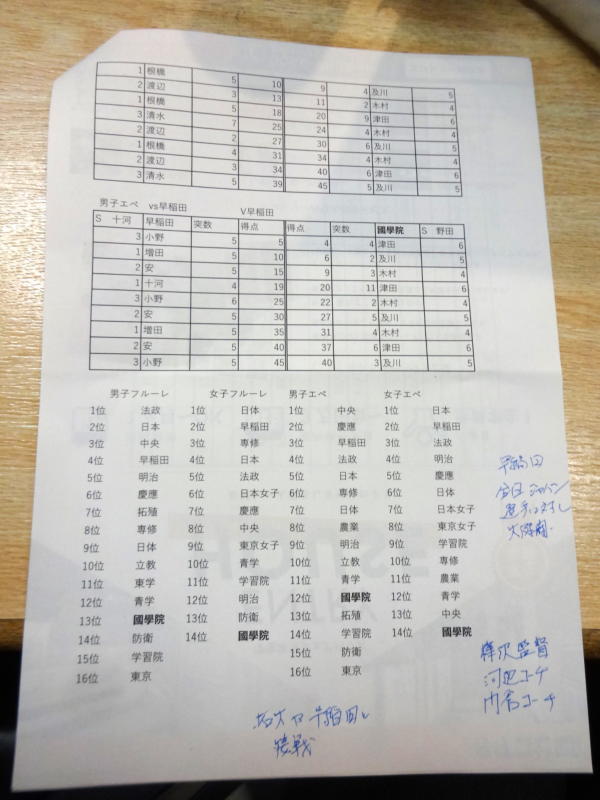 1 根橋 5 10 9 4 及川 5
2 渡辺 3 13 11 2 木村 4
1 根橋 5 18 20 9 津田 6
3 清水 7 25 24 4 木村 4
2 渡辺 2 27 30 6 及川 5
1 根橋 4 31 34 4 木村 4
2 渡辺 3 34 40 6 津田 6
3 清水 5 39 45 5 及川 5
男子エペ vs早稲田 V早稲田
S 十河 早稲田 突数 得点 得点 突数 國學院 S 野田
3 小野 5 5 4 4 津田 6
1 増田 5 10 6 2 及川 5
2 安 5 15 9 3 木村 4
1 十河 4 19 20 11 津田 6
3 小野 6 25 22 2 木村 4
2 安 5 30 27 5 及川 5
1 増田 5 35 31 4 木村 4
2 安 5 40 37 6 津田 6
3 小野 5 45 40 3 及川 5
男子フルーレ 女子フルーレ 男子エペ 女子エペ
1位 法政 1位 日体 1位 中央 1位 日本
2位 日本 2位 早稲田 2位 慶應 2位 早稲田
3位 中央 3位 専修 3位 早稲田 3位 法政
4位 早稲田 4位 日本 4位 法政 4位 明治
5位 明治 5位 法政 5位 日本 5位 慶應
6位 慶應 6位 日本女子 6位 専修 6位 日体
7位 拓殖 7位 慶應 7位 日体 7位 日本女子
8位 専修 8位 中央 8位 農業 8位 東京女子
9位 日体 9位 東京女子 9位 明治 9位 学習院
10位 立教 10位 青学 10位 立教 10位 専修
11位 東学 11位 学習院 11位 青学 11位 農業
12位 青学 12位 明治 12位 國學院 12位 青学
13位 國學院 13位 防衛 13位 拓殖 13位 中央
14位 防衛 14位 國學院 14位 学習院 14位 國學院
15位 学習院 15位 防衛
16位 東京 16位 東京
早稲田
選手に対し
監督
コーチ
コーチ
早稲田
接戦